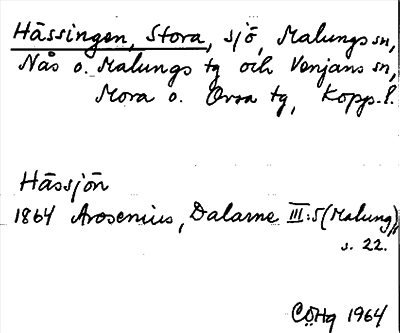 Hässingen, Stora, sjö, Malungs sn,
Nås o. Malungs tg och Venjans sn,
Mora o. Orsa tg, Kopp. l.
Hässjön
1864 Arosenius, Dalarne III:5 (Malung),
s. 22.
CÖHg 1964